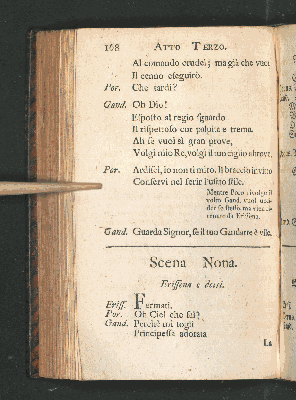 168 ATTO TERZO.
Al comando crudel; ma già che vuoi
Il cenno eseguirò.
Por. Che tardi?
Gand. Oh Dio!
Esposto al regio sguardo
Il rispettoso cor palpita e trema.
Ah se vuoi sì gran prove,
Volgi mio Re, volgi il tuo ciglio altrove.
Por. Ardisci, io non ti miro. Il braccio invitto
Conservi nel ferir l'usato stile.
Mentre Poro rivolge il
volto Gand. vuol ucci-
der se stesso, ma vien
da Erissena.
Gand. Guarda Signor, se il tuo Gandarte è vile.
Scena Nona.
Erissena e detti.
Eriss. Fermati.
Por. Oh Ciel che fai?
Gand. Perchè mi togli
Principessa adorata
La